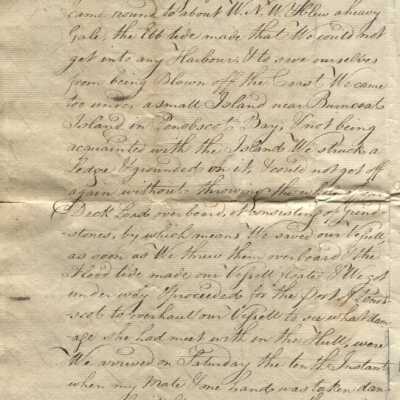 came round to about W. N. W. & Blew a heavy
Gale, the Ebb tide made that We could not
get into any Harbour, & to save ourselves
from being Blown off the Coast We came
too under a small Island near Burncoat
Island in Penobscot Bay, & not being
acquainted with the Island We struck a
Ledge & grounded on it, & could not get off
again without throwing the whole of our
Deck Load overboard, it consisting of grind
stones, by which means We saved our Vessell,
as soon as We threw them overboard & the
Flood tide made our Vessell floated & We got
under way & proceeded for the Port of Penob
scot to overhaul our Vessell to see what dam
age she had meet with in the Hull, were
We arrived on Saturday the tenth Instant
when my Mate & one hand was taken dan